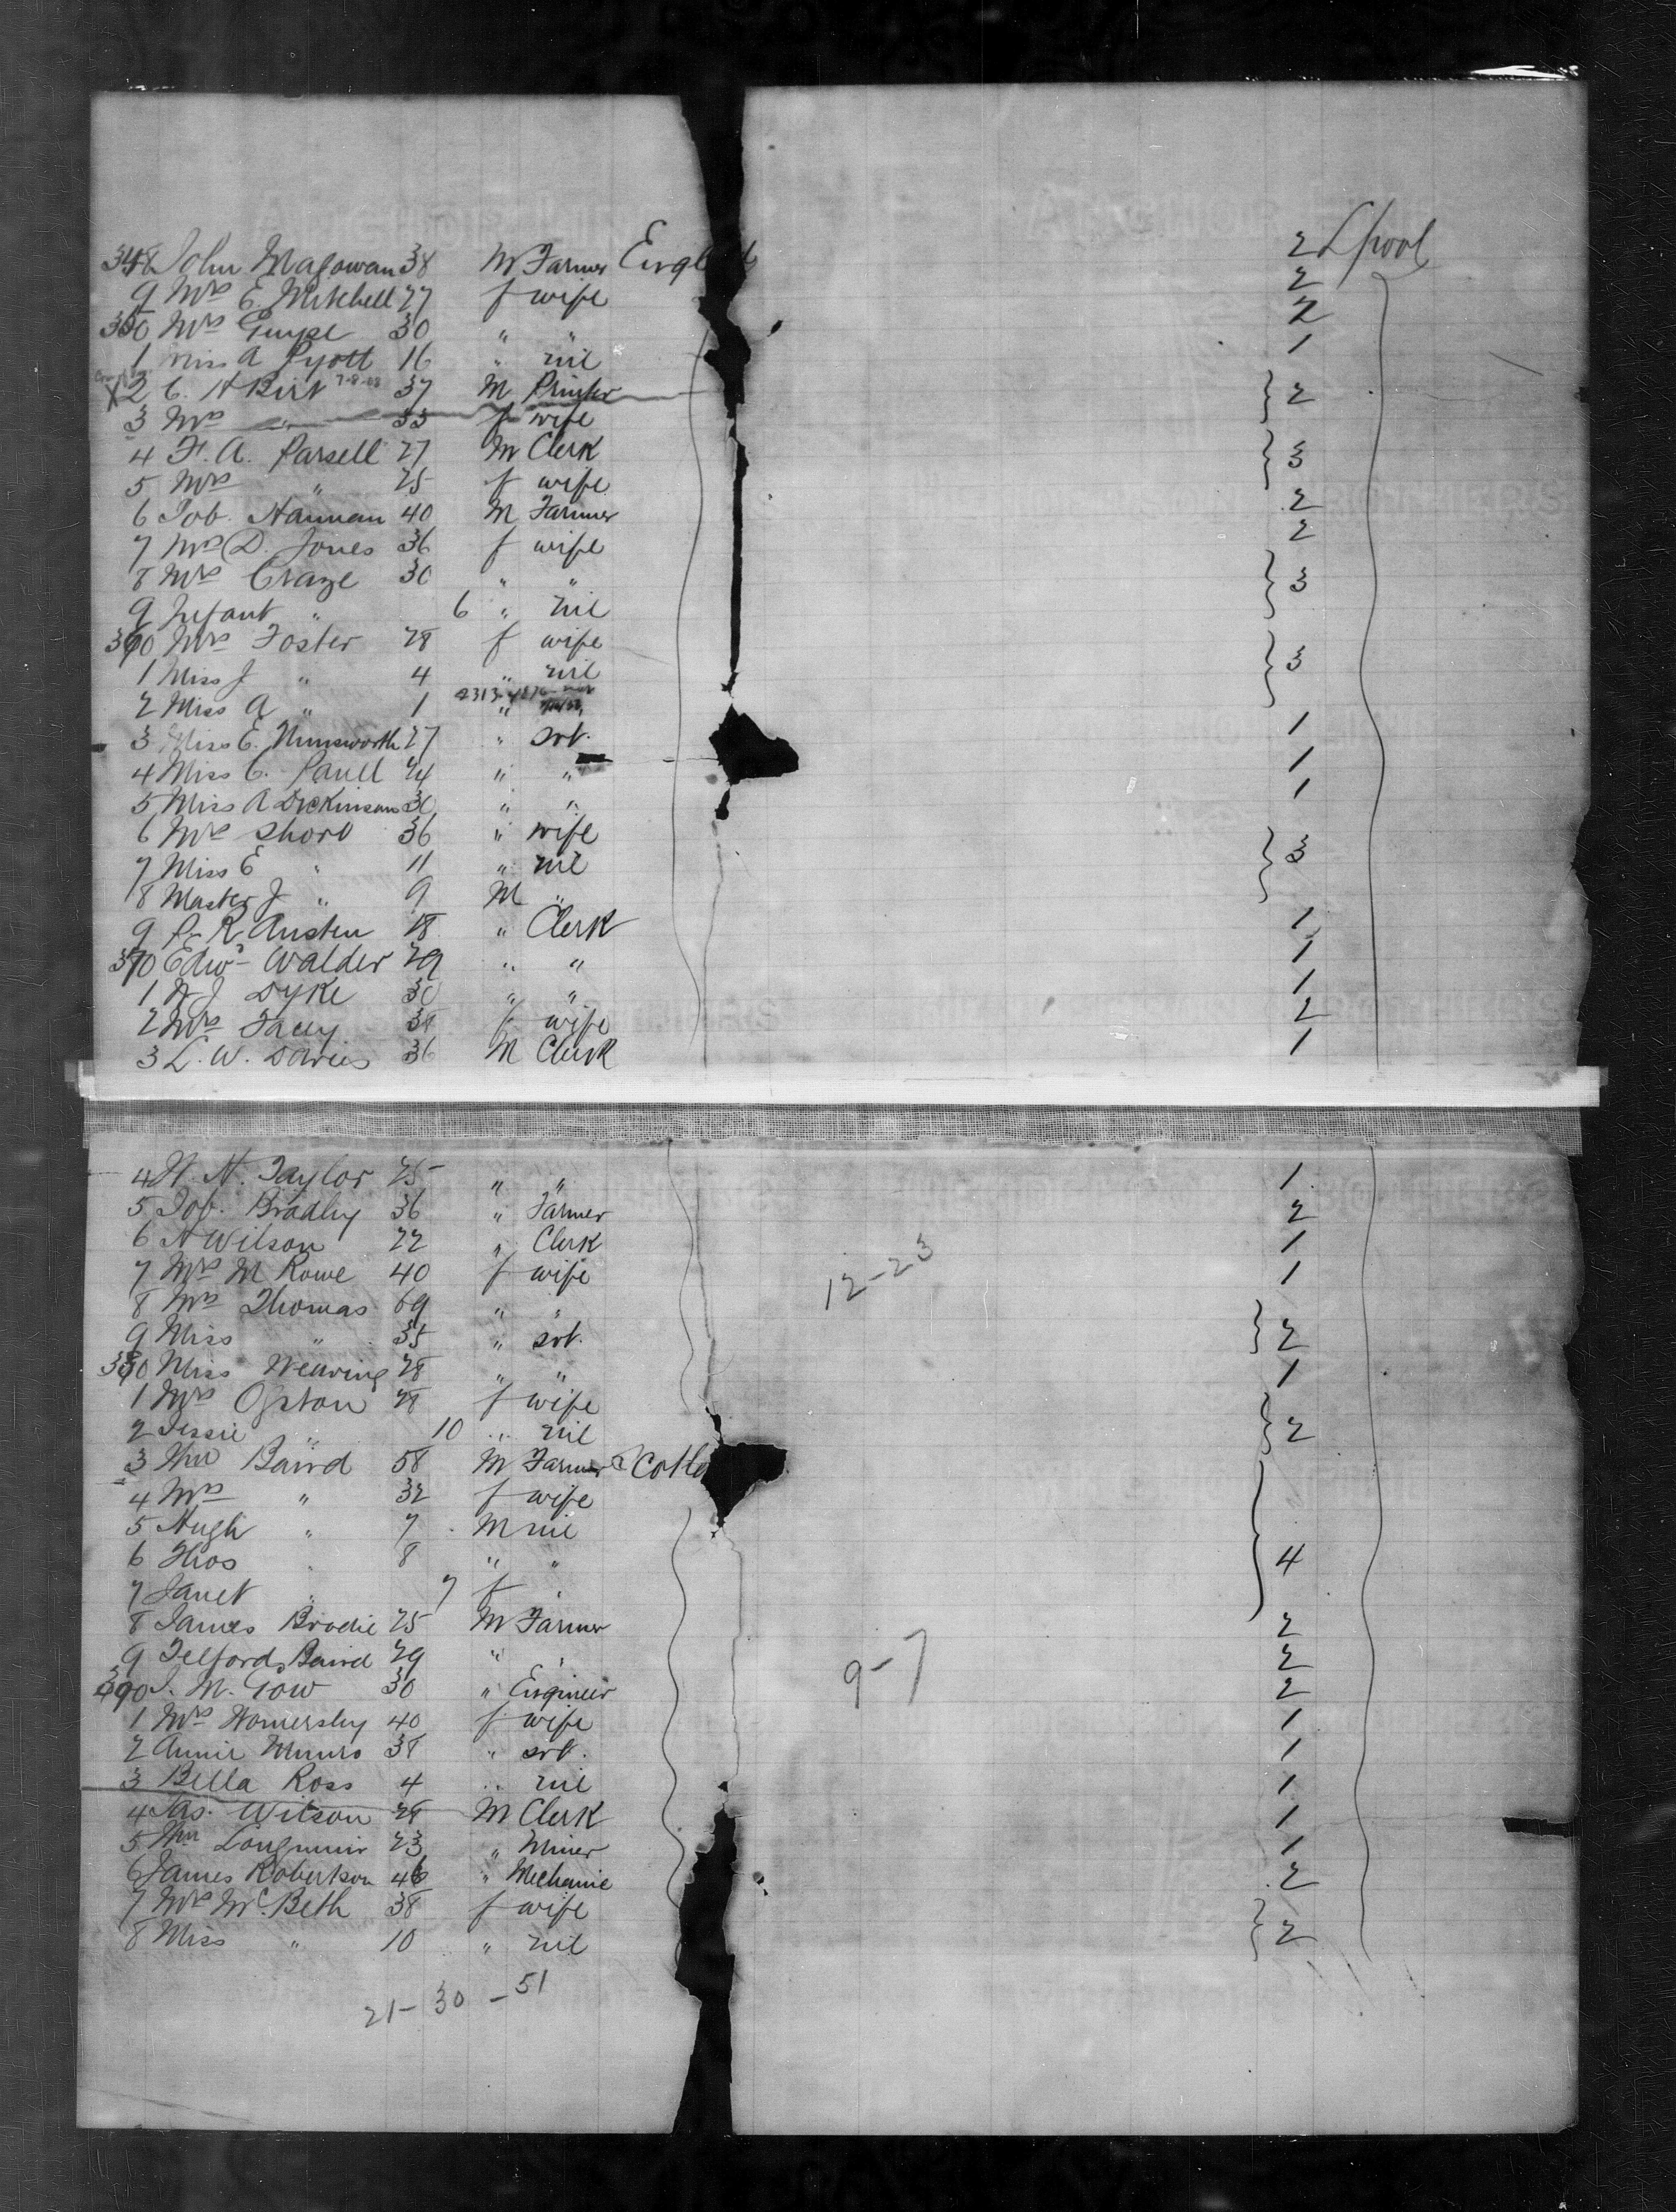 348 John Magowan 38 M Farmer Engl 2 L'pool
9 Mrs E. Mitchell 27 f wife 2
350 Mrs 30 " " 2
1 Miss A Pyott 16 " nil 1
X2 C. H Birt 7-8-08 37 M Printer } 2
3 Mrs " 33 f wife
4 F. A. Parsell 27 M Clerk } 3
5 Mrs " 25 f wife
6 Job. Hannan 40 M Farmer 2
7 Mrs D. Jones 36 f wife 2
8 Mrs Craze 30 " " } 3
9 Infant " 6 " nil
360 Mrs Foster 28 f wife } 3
1 Miss J " 4 " nil
2 Miss A " 1 "
3 Miss E. Hunsworth 27 " svt. 1
4 Miss C. Parell 24 " " 1
5 Miss A Dickinson 30 " " 1
6 Mrs Short 36 " wife } 3
7 Miss E " 11 " nil
8 Master J " 9 M "
9 P. R. Austen 18 " Clerk 1
370 Edwd Walder 29 " " 1
1 A J Dyke 30 " " 1
2 Mrs Facey 38 f wife 2
3 L. W. Davies 36 M Clerk 1
4 H. H. Taylor 25 " " 1
5 Job. Bradley 36 " Farmer 2
6 A Wilson 22 " Clerk 1
12-23
7 Mrs M Rowe 40 f wife 1
8 Mrs Thomas 69 " " } 2
9 Miss " 35 " svt.
380 Miss Wearing 28 " " 1
1 Mrs Ogston 28 f wife } 2
2 Jessie " 10 " nil
3 Wm Baird 58 M Farmer Scotl } 4
4 Mrs " 32 f wife
5 Hugh " 7 M nil
6 Thos " 8 " "
7 Janet " 7 f "
8 James Brodie 25 M Farmer 2
9 Telford Baird 29 " " 2
9-7
390 J. M. Gow 30 " Engineer 2
1 Mrs Homersley 40 f wife 1
2 Annie Munro 38 " svt. 1
3 Bella Ross 4 " nil 1
4 Jas. Wilson 28 M Clerk 1
5 Wm Longmuir 23 " Miner 1
6 James Robertson 46 " Mechanic 2
7 Mrs McBeth 38 f wife } 2
8 Miss " 10 " nil
21-30-51